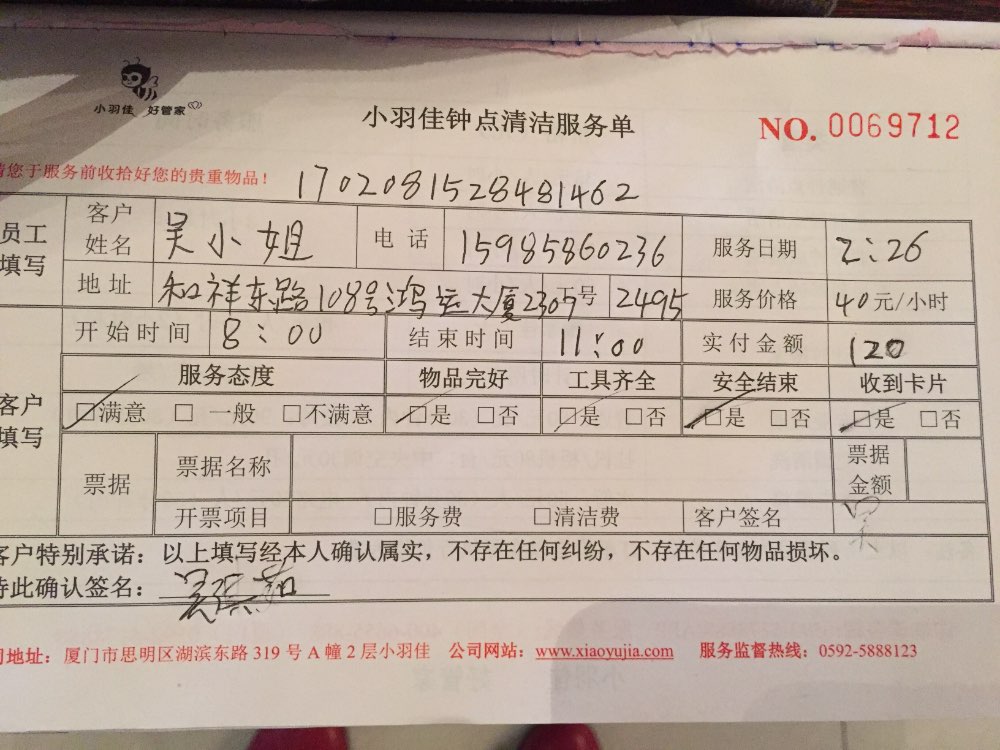 小羽佳 好管家
小羽佳钟点清洁服务单
NO. 0069712
请您于服务前收拾好您的贵重物品！
1702081528481462
员工填写 客户姓名 吴小姐 电话 15985860236 服务日期 2:26
地址 和祥东路108号鸿运大厦2309 工号 2495 服务价格 40元/小时
开始时间 8:00 结束时间 11:00 实付金额 120
客户填写 服务态度 物品完好 工具齐全 安全结束 收到卡片
□满意 □一般 □不满意 □是 □否 □是 □否 □是 □否 □是 □否
票据 票据名称 票据金额
开票项目 □服务费 □清洁费 客户签名 吴
客户特别承诺：以上填写经本人确认属实，不存在任何纠纷，不存在任何物品损坏。
特此确认签名：吴
司地址：厦门市思明区湖滨东路 319 号 A 幢 2 层小羽佳 公司网站：www.xiaoyujia.com 服务监督热线：0592-5888123